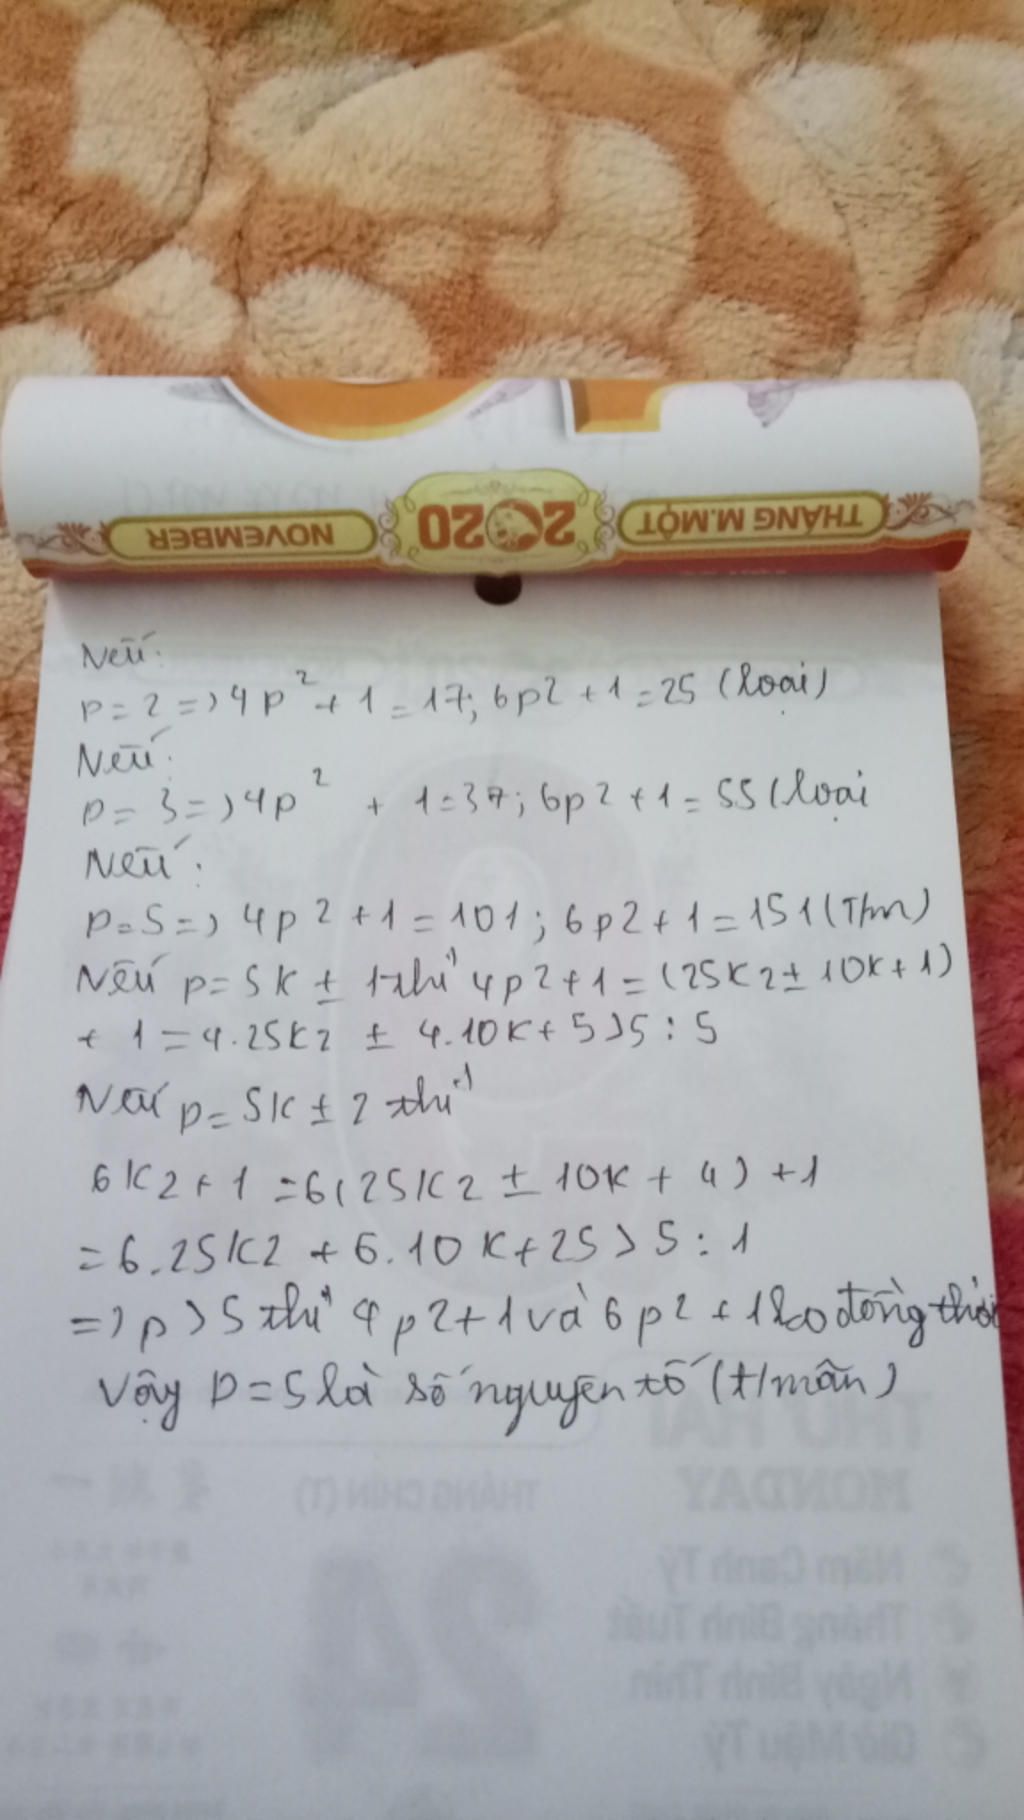 THÁNG M.MỘT
2020
NOVEMBER
Nếu:
p=2=)4p²+1=17;6p2+1=25 (loại)
Nếu:
p=3=)4p² + 1=37;6p2+1=55(loại
Nếu:
p=5=) 4p2+1=101;6p2+1=151(T/m)
Nếu p=5k±1 thì 4p2+1=(25k2±10k+1)
+1=4.25k2 ± 4.10k+5)5:5
Nếu p=5k±2 thì
6k2+1=6(25k2±10k+4)+1
=6.25k2+6.10k+25)5:1
=)p)5 thì 4p2+1 và 6p2+1 ko đồng thời
Vậy p=5 là số nguyên tố (t/mãn)
THỨ HAI
MONDAY
THÁNG CHÍN (T)
24
Năm Canh Tý
Tháng Bính Tuất
Ngày Bính Thìn
Giờ Mậu Tý